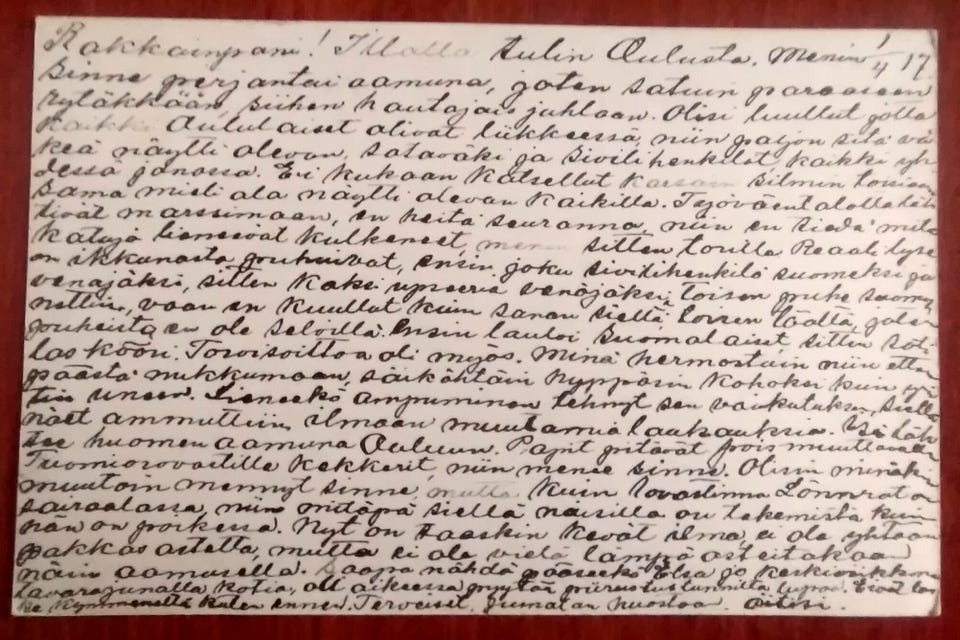 Rakkainpani! Illalla tulin Oulusta. Menin 1/4 17
sinne perjantai aamuna, joten satuin paraaseen
rytäkkään, siihen hautajaisjuhlaan. Olisi luullut jotta
kaikki Oululaiset olivat liikkeessä, niin paljon sitä vä
keä näytti olevan, sotaväki ja siviilihenkilöt kaikki yh
dessä jonossa. Ei kukaan katsellut karsain silmin toisiaan
sama mieli ala näytti olevan kaikilla. Työväentalolla läh
tivät marssimaan, en heitä seurannu, niin en tiedä mitä
katuja lienevät kulkeneet, sitten torilla Reaali lyse
on ikkunasta puhuivat, ensin joku siviilihenkilö suomeksi ja
venäjäksi, sitten kaksi upseeria venäjäksi, toisen puhe suomen
nettiin, vaan en kuullut kuin sanan sieltä toisen täältä, joten
puheista en ole selvillä. Ensin lauloi Suomalaiset sitten soti
las kööri. Torvisoittoa oli myös. Minä hermostuin niin etten
päästä nukkumaan, säikähtäin hyppäsin kohoksi kuin
uneen. Lieneekö ampuminen tehnyt sen vaikutuksen, siellä
näet ammuttiin ilmaan muutamia laukauksia. Isä läh
tee huomen aamuna Ouluun. Papit pitävät pois muuttavalle
Tuomiorovastille kekkerit, niin menee sinne. Olisin minäkin
muutoin mennyt sinne, mutta kuin rovastinna Lönnrot on
sairaalassa, niin mitäpä siellä naisilla on tekemistä kuin
hän on poikessa. Nyt on taaskin kevät ilma, ei ole yhtään
pakkas astetta, mutta ei ole vielä lämpö asteitakaan
näin aamusella. Saapa nähdä pääseekö Elsa jo keskiviikkona
tavarajunalla kotia, oli aikeessa pyytää piirustustunnilta lupaa. Eivät las
ke kymmeneltä kuten ennen. Terveiset. Jumalan huostaa Äitisi.